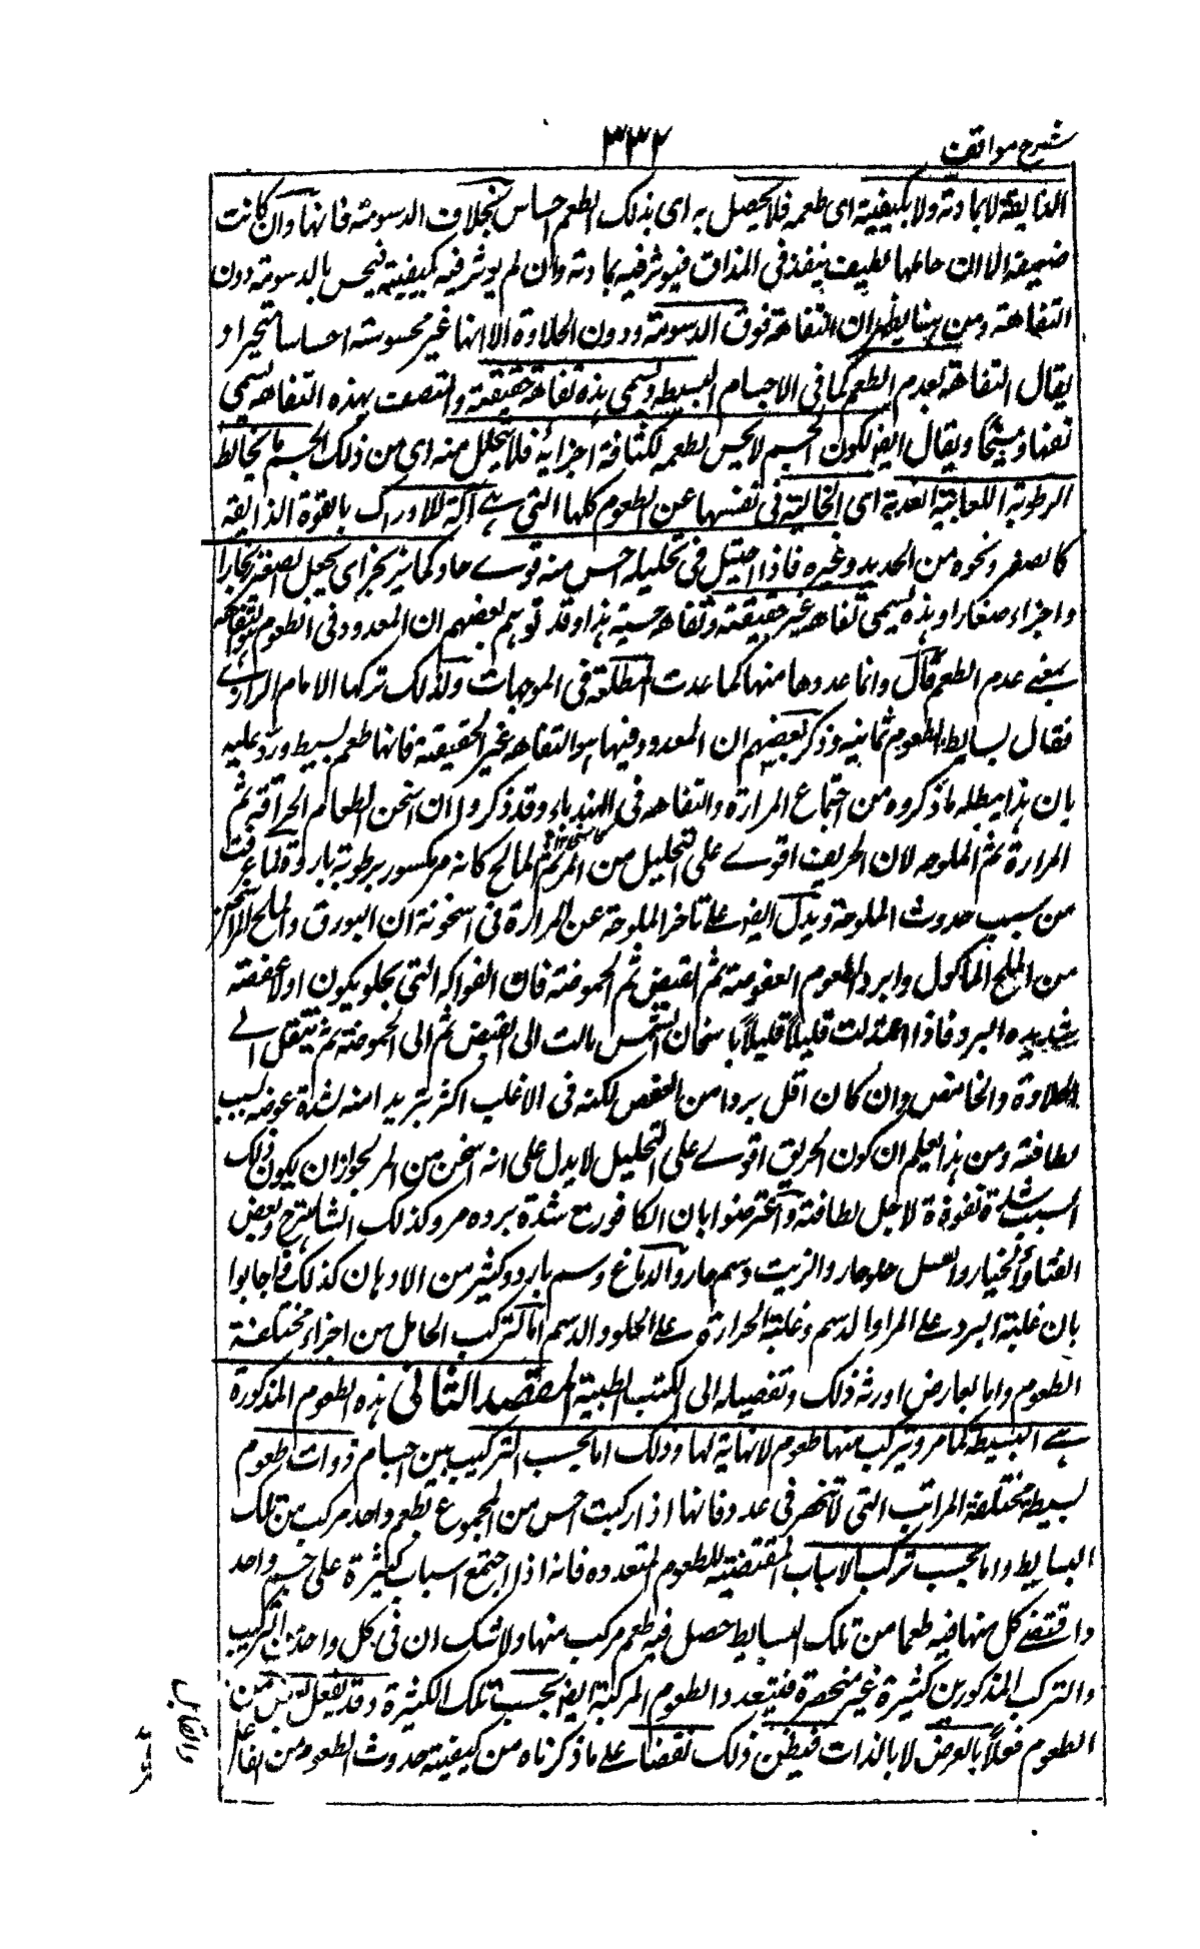 شرح مواقف
٣٣٢
الذايقة لا بمادته ولا بكيفيته اى طعمه فلا يحصل به اى بذلك الطعم احساس بخلاف الدسومة فانها وان كانت
ضعيفة الا ان حاملها لطيف ينفذ فى المذاق فيوثر فيه بمادته وان لم يوثر فيه بكيفيته فيحس بالدسومة دون
التفاهة ومن ههنا يظهر ان التفاهة فوق الدسومة ودون الحلاوة الا انها غير محسوسة احساسا متميزا و
يقال التفاهة لعدم الطعم كما فى الاجسام البسيطه ويسمى هذه تفاهة حقيقة والمتصف بهذه التفاهه يسمى
تفها ومسيخا ويقال ايضا لكون الجسم لا يحس لطعمه لكثافة اجزائه فلا يتحلل منه اى من ذلك الجسم ما يخالط
الرطوبة اللعابية العذبة اى الخالية فى نفسها عن الطعوم كلها التى هے آلة للادراك بالقوة الذايقة
كالصفر ونحوه من الحديد وغيره فاذا احتيل فى تحليله احس منه قوے حاد كما يزنجر اى يجعل الصفر زنجارا
واجزاء صغارا وهذه يسمى تفاهه غير حقيقية وتفاهه حسية هذا وقد توهم بعضهم ان المعدود فى الطعوم هو التفاهه
بمعنے عدم الطعم قال وانما عدوها منها كما عدت المطلقة فى الموجهات ولذلك تركها الامام الرازے
فقال بسايط الطعوم ثمانيه وذكر بعضهم ان المعدود فيها هو التفاهه غير الحقيقية فانها طعم بسيط ورد عليه
بان هذا يبطله ما ذكروه من اجتماع المرارة والتفاهه فى الهندباء وقد ذكروا ان اسخن الطعام الحرافة ثم
المرارة ثم الملوحه لان الحريف اقوے على التحليل من المر ثم المالح كانه مر مكسور برطوبة باردة لما عرفت
من سبب حدوث الملوحة ويدل ايضا علے تاخر الملوحة عن المرارة فى السخونة ان البورق والملح المر اسخن
من الملح الماكول وابرد الطعوم العفوصة ثم القبض ثم الحموضة فان الفواكه التى يحلو يكون اولا عفصة
شديدة البرد فاذا اعتدلت قليلاً قليلاً باسخان الشمس مالت الى القبض ثم الى الحموضة ثم تنتقل الے
الحلاوة والحامض وان كان اقل بردا من العفص لكنه فى الاغلب اكثر تبريدا منه لشدة غوصه بسبب
لطافته ومن هذا يعلم ان كون الحريف اقوے على التحليل لا يدل على انه اسخن من المر لجواز ان يكون ذلك
بسبب شدة نفوذه لاجل لطافته واعترضوا بان الكافور مع شدة برده مر وكذلك الشاهترج وبعض
القثاء والخيار والعسل حلو حار والزيت دسم حار والدماغ دسم بارد وكثير من الادهان كذلك واجابوا
بان غلبة البرد علے المر او الدسم وغلبة الحرارة علے الحلو والدسم اما لتركب الحامل من اجزاء مختلفة
الطعوم واما لعارض اورثه ذلك وتفصيله الى الكتب الطبية المقصد الثانى هذه الطعوم المذكورة
هے البسيطة كما مر ويتركب منها طعوم لا نهاية لها وذلك اما بحسب التركيب بين اجسام ذوات طعوم
بسيطة مختلفة المراتب التى لا تنحصر فى عدد فانها اذا ركبت احس من المجموع بطعم واحد مركب من تلك
البسايط واما بحسب تركب الاسباب المقتضية للطعوم المتعدده فانه اذا اجتمع اسباب كثيرة على جسم واحد
واقتضے كل منها فيه طعما من تلك البسايط حصل فيه طعم مركب منها ولا شك ان فى كل واحد من التركيب
والتركب المذكورين كثيرة غير منحصرة فيتعدد الطعوم المركبة ايضا بحسب تلك الكثيرة وقد يفعل بعض من
الطعوم فعلاً بالعرض لا بالذات فيظن ذلك نقضا علے ما ذكرناه من كيفية حدوث الطعوم من الفاعل
والقابل